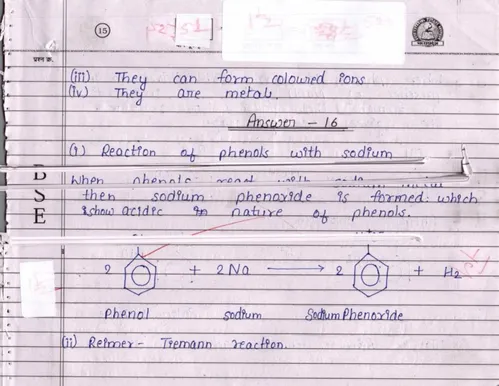 15
प्रश्न क्र.
(iii) They can form coloured ions
(iv) They are metals.
Answer - 16
(i) Reaction of phenols with sodium
When phenols react with
then sodium phenoxide is formed which
show acidic in nature of phenols.
B
S
E
2 + 2Na → 2 + H2
Phenol sodium Sodium Phenoxide
(ii) Reimer - Tiemann reaction.